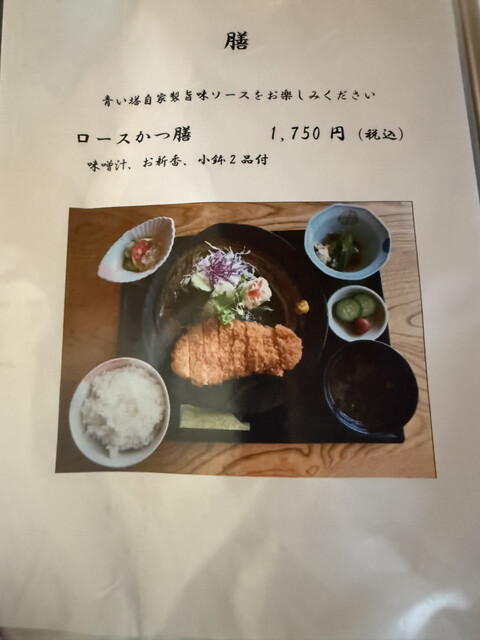 膳
青い塔自家製旨味ソースをお楽しみください
ロースかつ膳 1,750円（税込）
味噌汁、お新香、小鉢2品付